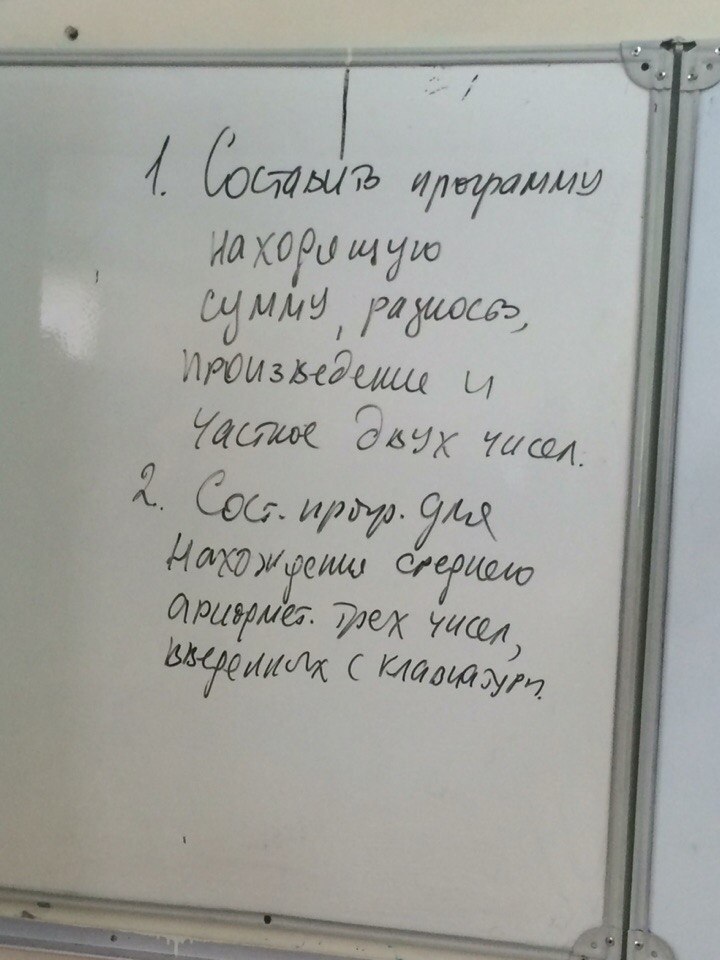 1. Составить программу
находящую
сумму, разность,
произведение и
частное двух чисел.
2. Сост. прогр. для
нахождения среднего
арифмет. трех чисел,
введенных с клавиатуры.